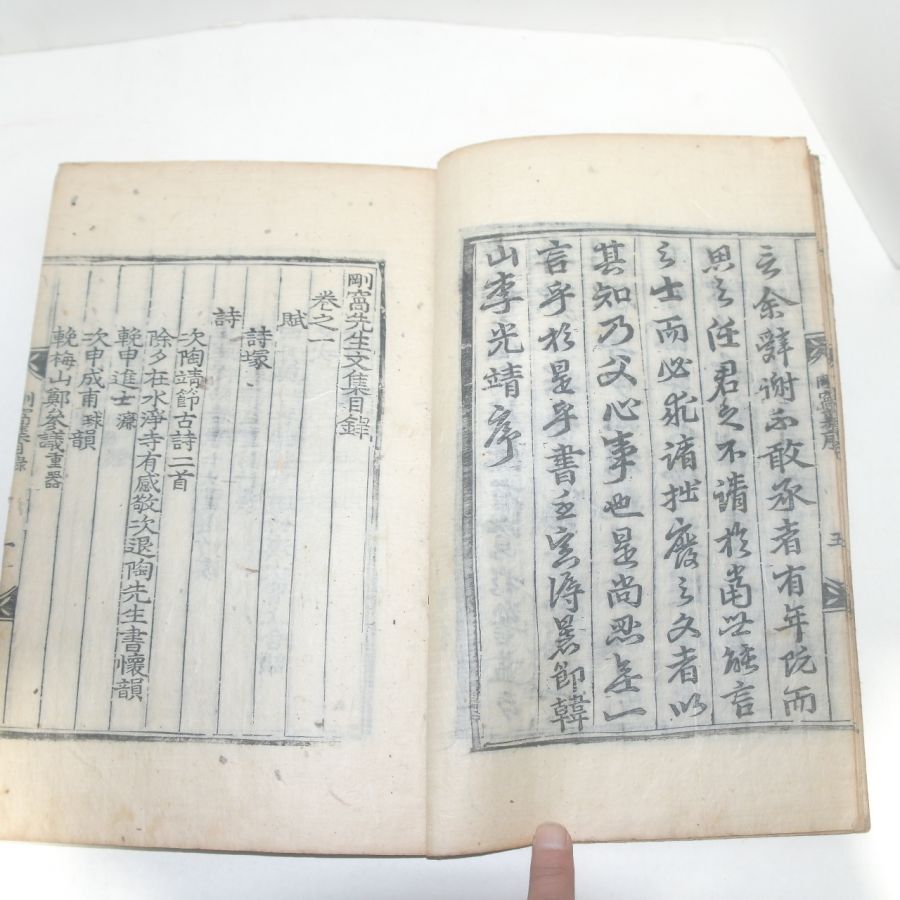 言余辭謝不敢承者有年旣而
思之任君之不請於當世能言
之士而必求諸拙廢之文者以
其知乃父心事也是尚忍無一
言乎於是乎書
暑節韓
山李光靖序
剛窩集序
五
剛窩先生文集目錄
卷之一
賦
詩塚
詩
次陶靖節古詩二首
除夕在水淨寺有感敬次退陶先生書懷韻
輓申進士濂
次申成甫球韻
輓梅山鄭參議重器
剛窩集目錄
一